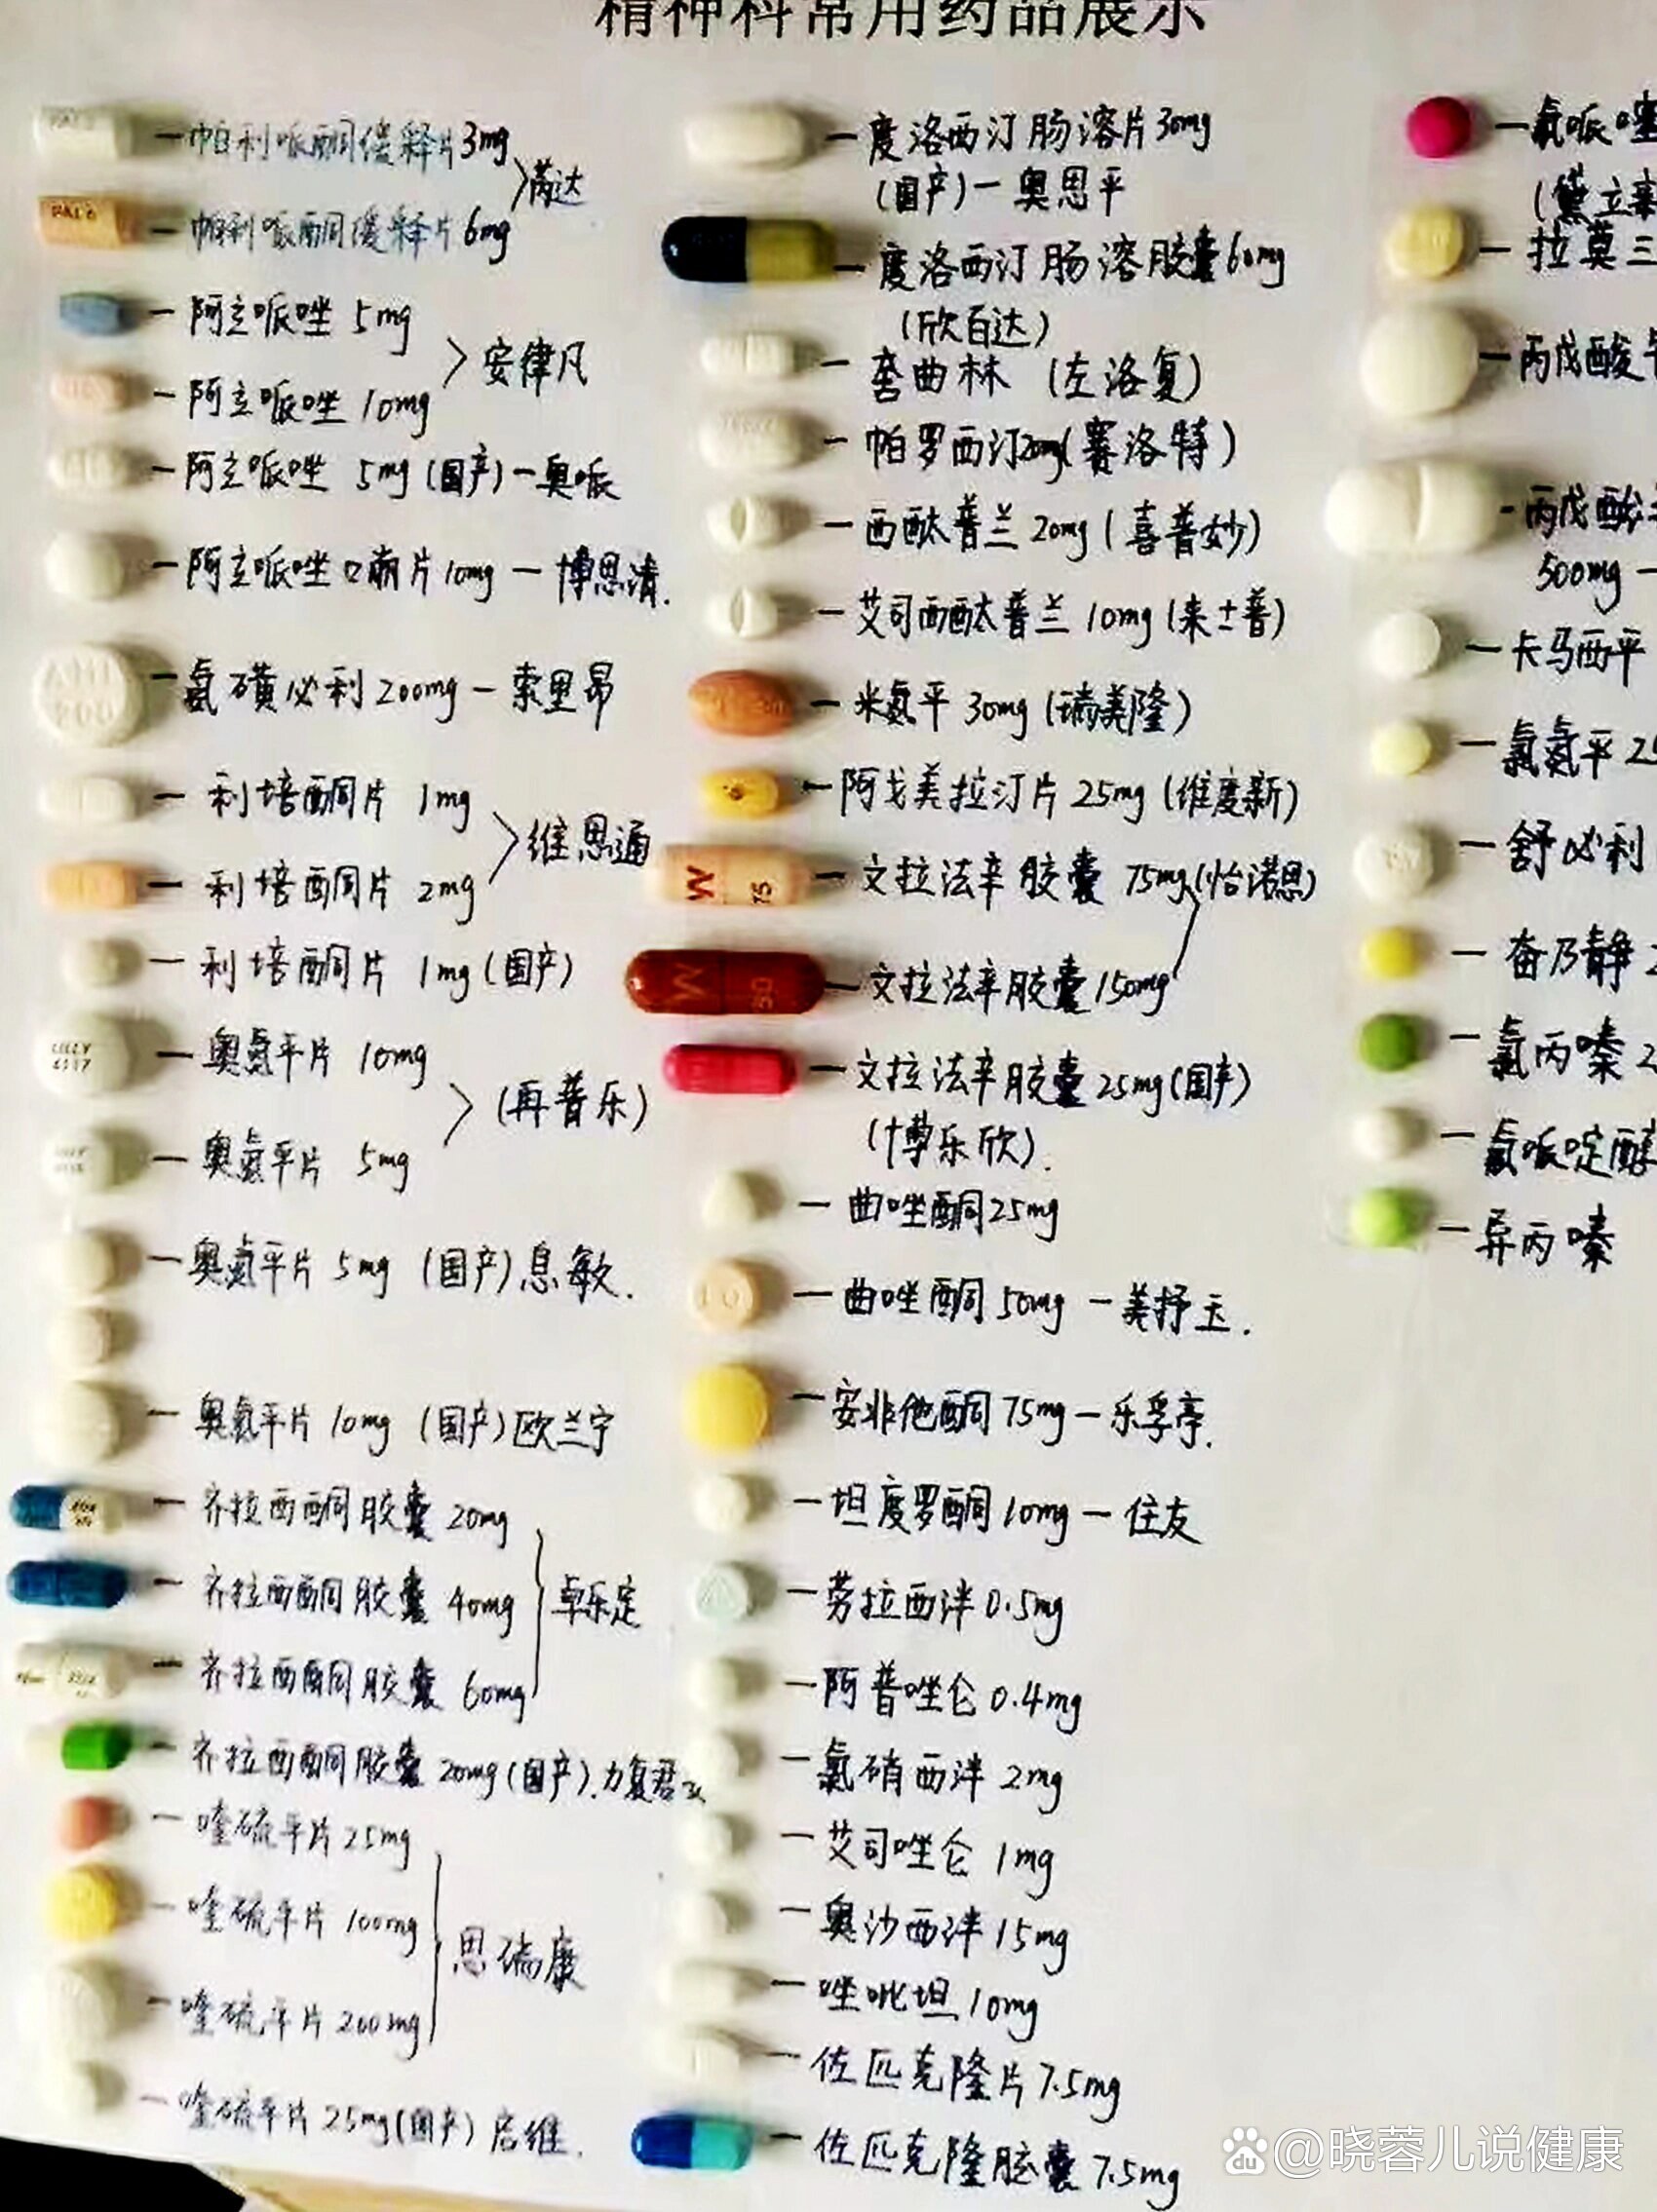 精神科常用药品展示
帕利哌酮缓释片3mg
芮达
帕利哌酮缓释片6mg
阿立哌唑 5mg
安律凡
阿立哌唑 10mg
阿立哌唑 5mg(国产)-奥哌
阿立哌唑口崩片10mg-博思清.
AMI
200
氨磺必利200mg-索里昂
利培酮片 1mg
维思通
利培酮片 2mg
利培酮片 1mg(国产)
LILLY
4117
奥氮平片 10mg
(再普乐)
奥氮平片 5mg
奥氮平片 5mg (国产)息敏.
奥氮平片 10mg (国产)欧兰宁
齐拉西酮胶囊 20mg
齐拉西酮胶囊 40mg
卓乐定
齐拉西酮胶囊 60mg
齐拉西酮胶囊 20mg(国产).力复君
喹硫平片25mg
喹硫平片 100mg
思瑞康
喹硫平片200mg
喹硫平片25mg(国产)启维.
度洛西汀肠溶片30mg
(国产)-奥思平
度洛西汀肠溶胶囊60mg
(欣百达)
舍曲林 (左洛复)
帕罗西汀20mg(赛洛特)
西酞普兰20mg(喜普妙)
艾司西酞普兰10mg(来士普)
米氮平30mg(瑞美隆)
阿戈美拉汀片25mg(维度新)
W
75
文拉法辛胶囊 75mg(怡诺思)
W
50
文拉法辛胶囊150mg
文拉法辛胶囊25mg(国产)
(博乐欣).
曲唑酮25mg
曲唑酮50mg-美抒玉.
安非他酮75mg-乐孚亭.
坦度罗酮10mg-住友
劳拉西泮0.5mg
阿普唑仑0.4mg
氯硝西泮2mg
艾司唑仑 1mg
奥沙西泮15mg
唑吡坦10mg
佐匹克隆片7.5mg
佐匹克隆胶囊7.5mg
氟哌
(黛立
拉莫三
丙戊酸
丙戊酸
500mg-
卡马西平
氯氮平25
舒必利
奋乃静2
氯丙嗪2
氟哌啶醇
异丙嗪
du @晓蓉儿说健康